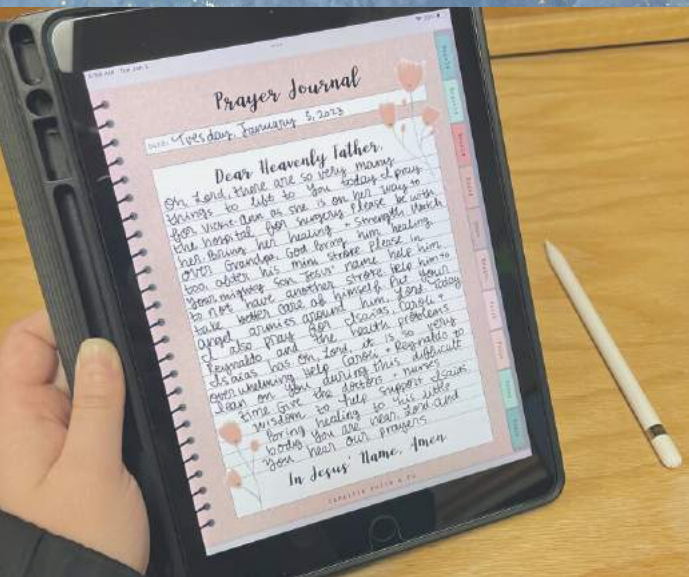 Prayer Journal
DATE: Tuesday, January 3, 2023
Dear Heavenly Father,
Oh Lord, there are so very many
things to lift to you today. I pray
for Vickie-Ann as she is on her way to
the hospital for surgery. Please be with
her. Bring her healing + strength. Watch
over Grandpa, God. Bring him healing,
too, after his mini stroke. Please, in
your mighty son Jesus' name, help him
to not have another stroke. Help him to
take better care of himself. Put your
angel armies around him, Lord. Today
I also pray for Isaias, Caroli +
Reynaldo and the health problems
Isaias has on. Lord, it is so very
overwhelming. Help Caroli + Reynaldo to
lean on you during this difficult
time. Give the doctors + nurses
wisdom to help support Isaias.
Bring healing to his little
body. You are near, Lord and
you hear our prayers.
In Jesus' Name, Amen